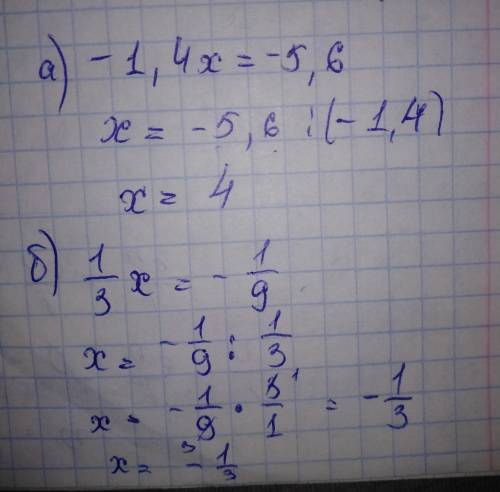 а) -1,4x = -5,6
x = -5,6 : (-1,4)
x = 4
б) 1/3 x = - 1/9
x = - 1/9 : 1/3
x = - 1/9 3 · 3/1 1 = - 1/3
x = - 1/3